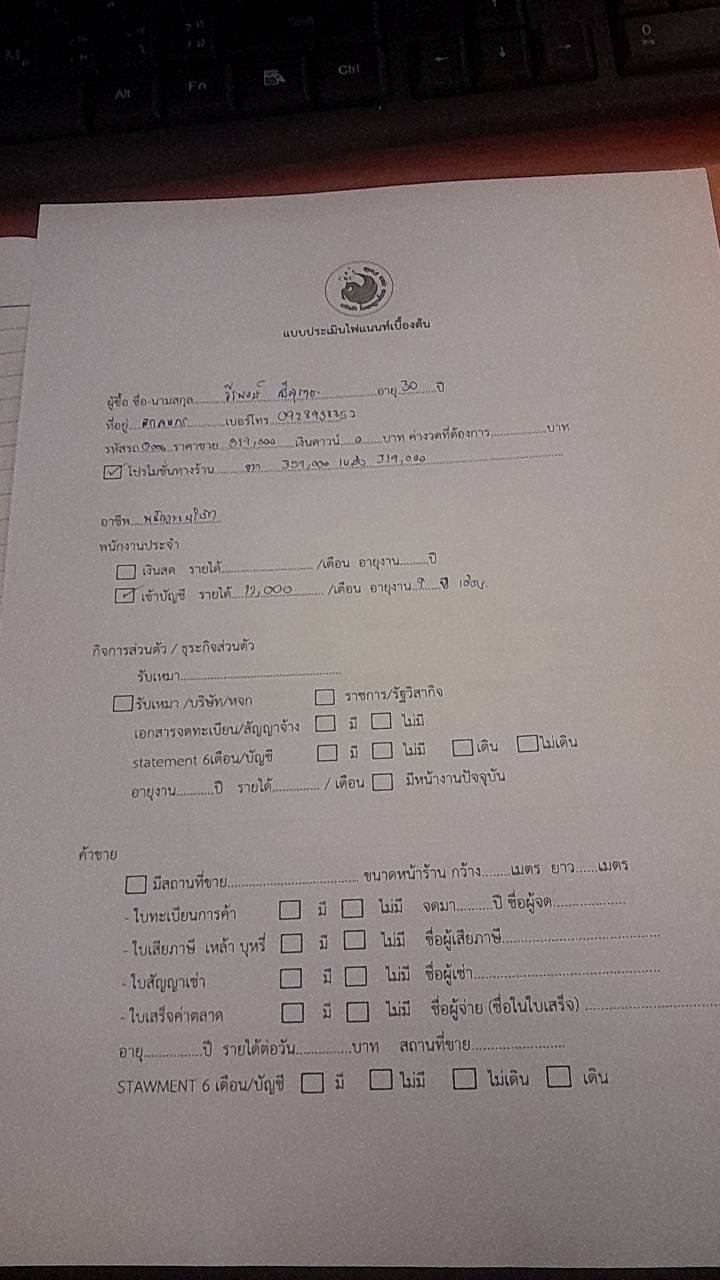 Shift
Alt Fn Ctrl ← ↓ → 0 Ins
แบบประเมินไฟแนนท์เบื้องต้น
ผู้ซื้อ ชื่อ-นามสกุล อายุ 30 ปี
ที่อยู่ เบอร์โทร
รหัสรถ ราคาขาย 319,000 เงินดาวน์ 0 บาท ค่างวดที่ต้องการ บาท
โปรโมชั่นทางร้าน จาก 359,000 เหลือ 319,000
อาชีพ พนักงานบริษัท
พนักงานประจำ
เงินสด รายได้ /เดือน อายุงาน ปี
เข้าบัญชี รายได้ 12,000 /เดือน อายุงาน 9 ปี เดือน
กิจการส่วนตัว / ธุระกิจส่วนตัว
รับเหมา
รับเหมา /บริษัท/หจก ราชการ/รัฐวิสากิจ
เอกสารจดทะเบียน/สัญญาจ้าง มี ไม่มี
statement 6เดือน/บัญชี มี ไม่มี เดิน ไม่เดิน
อายุงาน ปี รายได้ / เดือน มีหน้างานปัจจุบัน
ค้าขาย
มีสถานที่ขาย ขนาดหน้าร้าน กว้าง เมตร ยาว เมตร
- ใบทะเบียนการค้า มี ไม่มี จดมา ปี ชื่อผู้จด
- ใบเสียภาษี เหล้า บุหรี่ มี ไม่มี ชื่อผู้เสียภาษี
- ใบสัญญาเช่า มี ไม่มี ชื่อผู้เช่า
- ใบเสร็จค่าตลาด มี ไม่มี ชื่อผู้จ่าย (ชื่อในใบเสร็จ)
อายุ ปี รายได้ต่อวัน บาท สถานที่ขาย
STAWMENT 6 เดือน/บัญชี มี ไม่มี ไม่เดิน เดิน